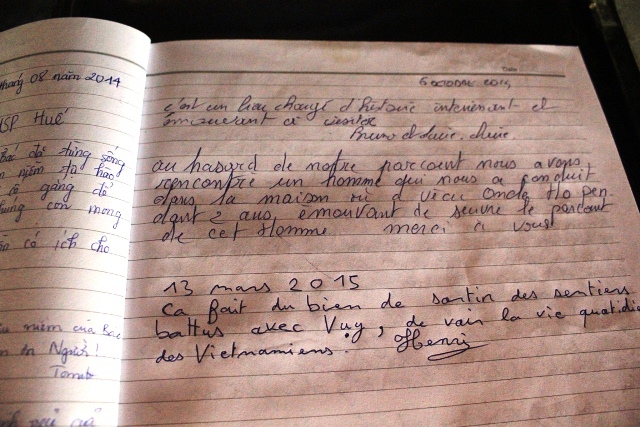 tháng 08 năm 2014
HSP Huế
Bác đã từng sống
niệm tự hào
cố gắng để
con mong
có ích cho
niệm của Bác
ơn Người!
Tomato
Date
6 octobre 2014
c'est un lieu chargé d'histoire interessant et
émouvant à visiter
Bruno et Lucie
au hasard de notre parcourt nous avons
rencontré un homme qui nous a conduit
dans la maison où a vécu Oncle Ho pen-
dant 2 ans émouvant de suivre le parcourt
de cet Homme merci à vous
13 mars 2015
ça fait du bien de sortir des sentiers
battus avec Vuy, de voir la vie quotidie
des Vietnamiens. Henri